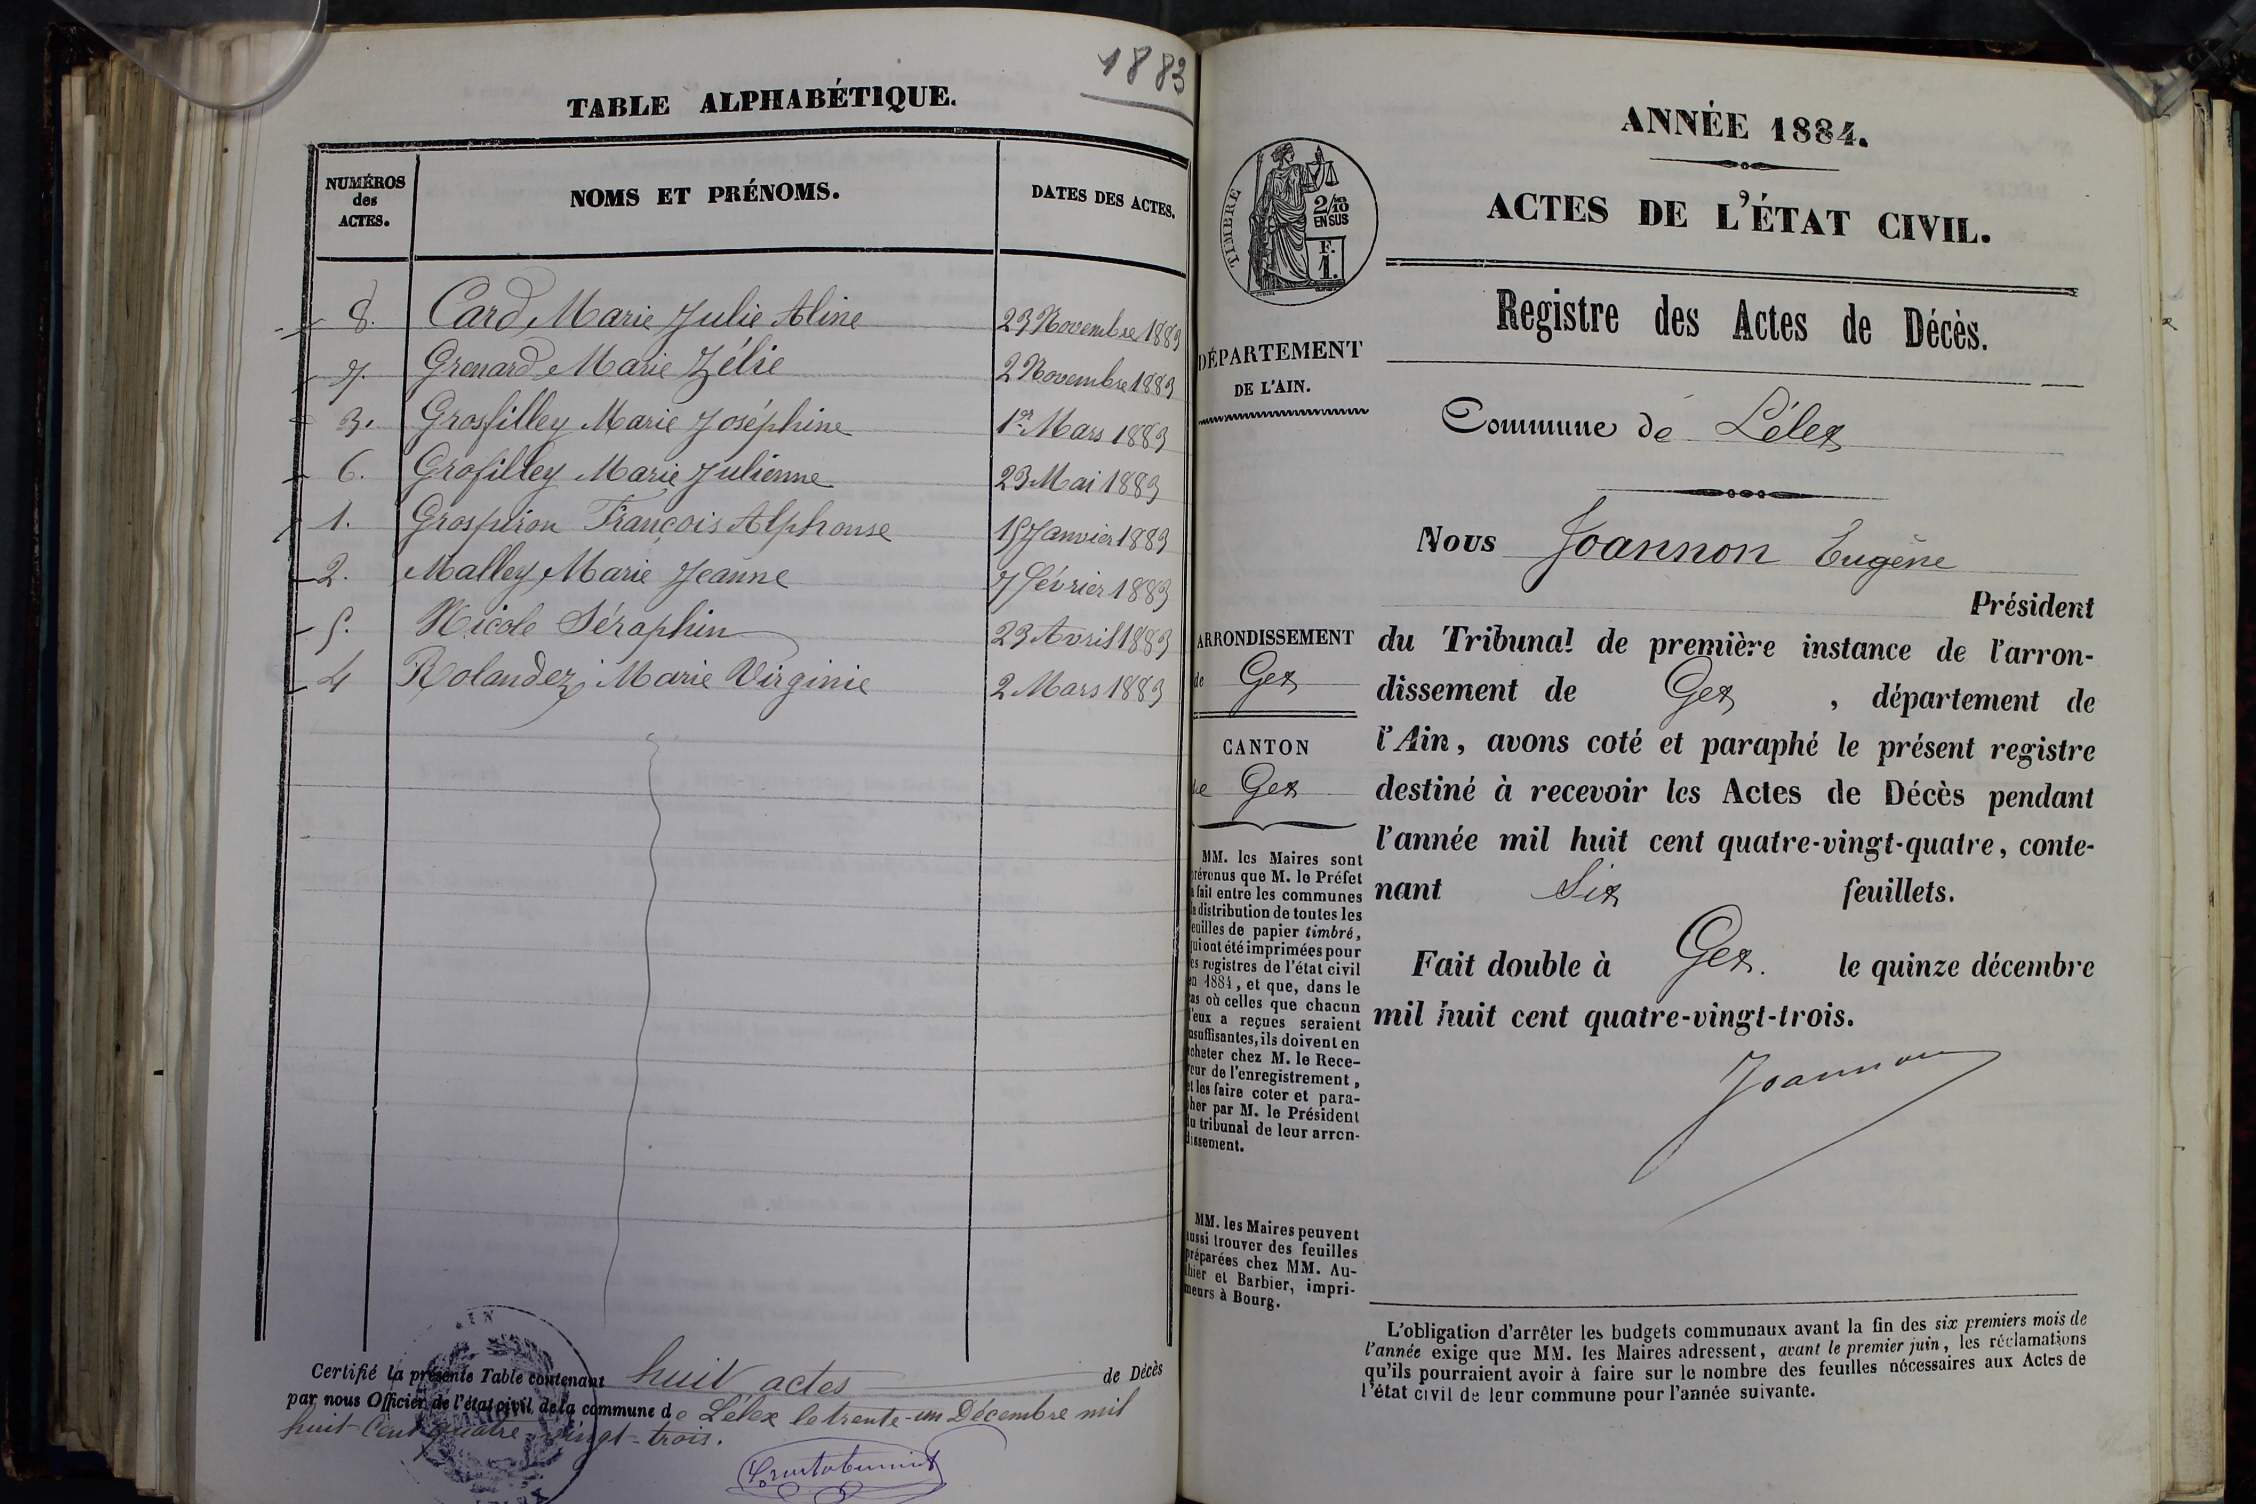 1883
TABLE ALPHABÉTIQUE.
NUMÉROS
des
ACTES.
NOMS ET PRÉNOMS.
DATES DES ACTES.
8. Card Marie Julie Aline 23 Novembre 1883
7. Grenard Marie Zélie 2 Novembre 1883
3. Grosfilley Marie Joséphine 1er Mars 1883
6. Grofilley Marie Julienne 23 Mai 1883
1. Grospiron François Alphonse 15 Janvier 1883
2. Malley Marie Jeanne 7 Février 1883
5. Nicole Séraphin 23 Avril 1883
4 Rolandez Marie Virginie 2 Mars 1883
Certifié la présente Table contenant huit actes de Décès
par nous Officier de l'état civil de la commune de Lélex le trente-un Décembre mil
huit cent quatre-vingt-trois.
ANNÉE 1884.
TIMBRE
2/10
EN SUS
F.
1.
ACTES DE L'ÉTAT CIVIL.
Registre des Actes de Décès.
DÉPARTEMENT
DE L'AIN.
Commune de Lélex
Nous Joannon Eugène
Président
du Tribunal de première instance de l'arron-
dissement de Gex, département de
l'Ain, avons coté et paraphé le présent registre
destiné à recevoir les Actes de Décès pendant
l'année mil huit cent quatre-vingt-quatre, conte-
nant Six feuillets.
Fait double à Gex. le quinze décembre
mil huit cent quatre-vingt-trois.
Joannon
ARRONDISSEMENT
de Gex
CANTON
de Gex
MM. les Maires sont
prévenus que M. le Préfet
a fait entre les communes
la distribution de toutes les
feuilles de papier timbré,
qui ont été imprimées pour
les registres de l'état civil
en 1884, et que, dans le
cas où celles que chacun
d'eux a reçues seraient
insuffisantes, ils doivent en
acheter chez M. le Rece-
veur de l'enregistrement,
et les faire coter et para-
pher par M. le Président
du tribunal de leur arron-
dissement.
MM. les Maires peuvent
aussi trouver des feuilles
préparées chez MM. Au-
thier et Barbier, impri-
meurs à Bourg.
L'obligation d'arrêter les budgets communaux avant la fin des six premiers mois de
l'année exige que MM. les Maires adressent, avant le premier juin, les réclamations
qu'ils pourraient avoir à faire sur le nombre des feuilles nécessaires aux Actes de
l'état civil de leur commune pour l'année suivante.